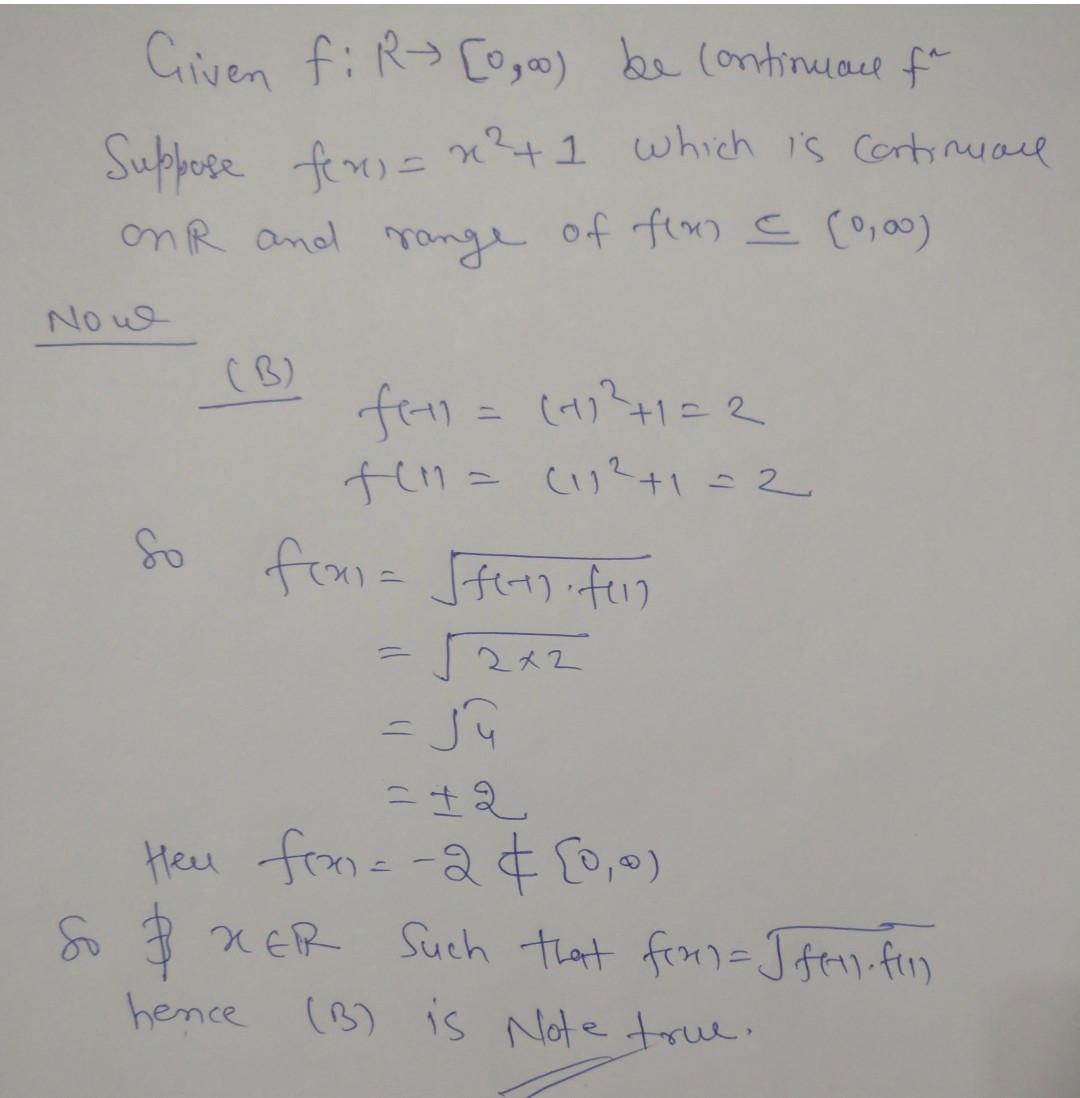 Given f: R→ [0,∞) be Continuous fⁿ
Suppose f(x) = x²+1 which is Continuous
on R and range of f(x) ⊆ (0,∞)
Now
(B)
f(-1) = (-1)²+1 = 2
f(1) = (1)²+1 = 2
So f(x) = √f(-1)·f(1)
= √2×2
= √4
= ±2
Here f(x) = -2 ⊄ [0,∞)
So ∄ x∈R Such that f(x) = √f(-1)·f(1)
hence (B) is Note true.